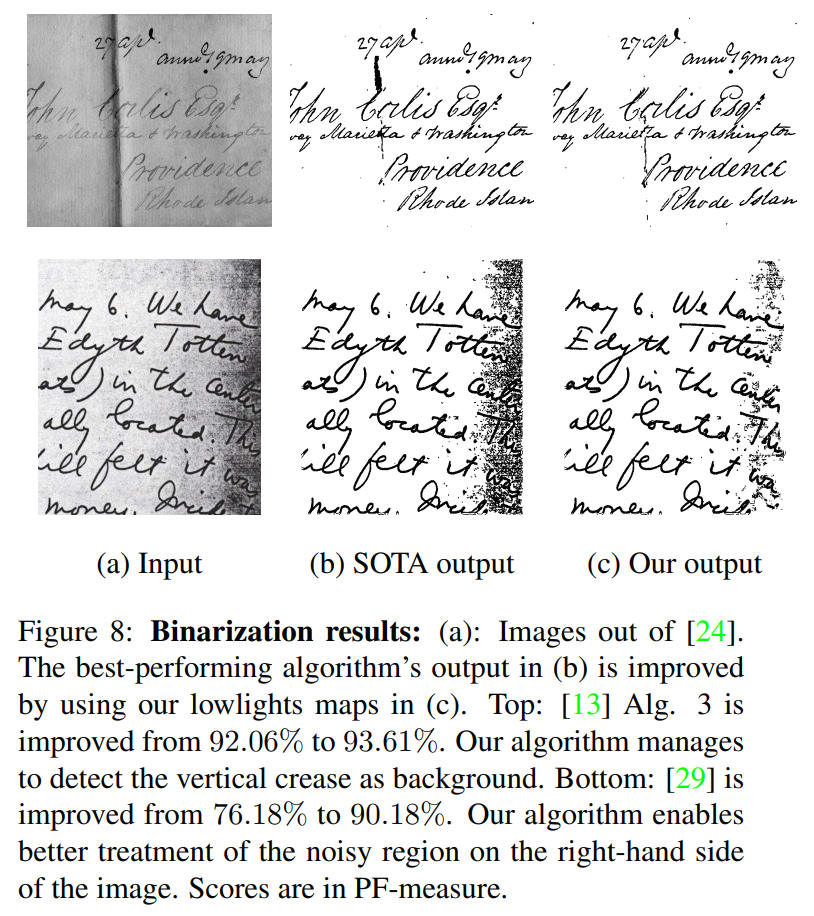 27 apl.
annd 19 may
John Carlis Esqr.
way Marietta & Washington
Providence
Rhode Islan
27 apl.
annd 19 may
John Carlis Esqr.
way Marietta & Washington
Providence
Rhode Islan
27 apl.
annd 19 may
John Carlis Esqr.
way Marietta & Washington
Providence
Rhode Islan
may 6. We have
Edyth Totten
ats) in the center
ally located. This
ill felt it was
money.
may 6. We have
Edyth Totten
ats) in the center
ally located. This
ill felt it was
money.
may 6. We have
Edyth Totten
ats) in the center
ally located. This
ill felt it was
money.
(a) Input
(b) SOTA output
(c) Our output
Figure 8: Binarization results: (a): Images out of [24].
The best-performing algorithm's output in (b) is improved
by using our lowlights maps in (c). Top: [13] Alg. 3 is
improved from 92.06% to 93.61%. Our algorithm manages
to detect the vertical crease as background. Bottom: [29] is
improved from 76.18% to 90.18%. Our algorithm enables
better treatment of the noisy region on the right-hand side
of the image. Scores are in PF-measure.